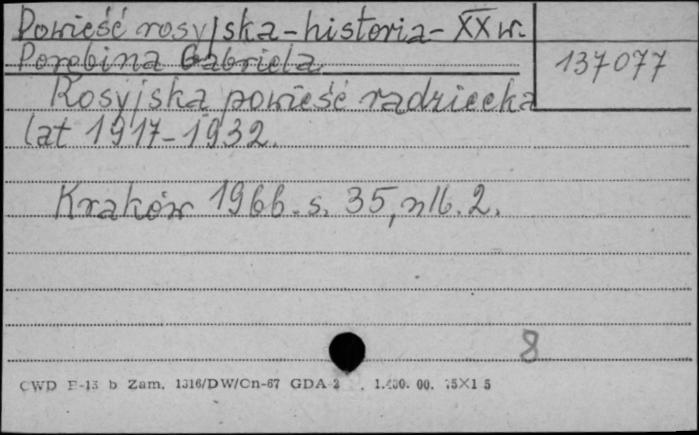 Powieść rosyjska - historia - XX w.
137077
Porębina Gabriela
Rosyjska powieść radziecka
lat 1917-1932.
Kraków 1966. s. 35, nlb. 2.
8
CWD E-13 b Zam. 1316/DW/Cn-67 GDA 1.400.00.